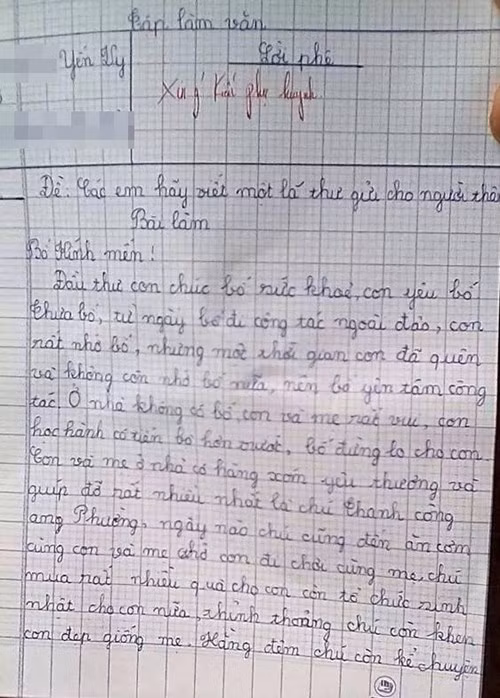 Tập làm văn
Yến Vy
Lời phê
Xin ý kiến phụ huynh
Đề: Các em hãy viết một lá thư gửi cho người thân
Bài làm
Bố kính mến!
Đầu thư con chúc bố sức khoẻ, con yêu bố
Thưa bố, từ ngày bố đi công tác ngoài đảo, con
rất nhớ bố, nhưng một thời gian con đã quên
và không còn nhớ bố nữa, nên bố yên tâm công
tác. Ở nhà không có bố, con và mẹ rất vui, con
học hành có tiến bộ hơn trước, bố đừng lo cho con.
Con và mẹ ở nhà có hàng xóm yêu thương và
giúp đỡ rất nhiều nhất là chú Thanh công
ang Phường, ngày nào chú cũng đến ăn cơm
cùng con và mẹ chở con đi chơi cùng mẹ, chú
mua rất nhiều quà cho con còn tổ chức sinh
nhật cho con nữa, thỉnh thoảng chú còn khen
con đẹp giống mẹ. Hằng đêm chú còn kể chuyện